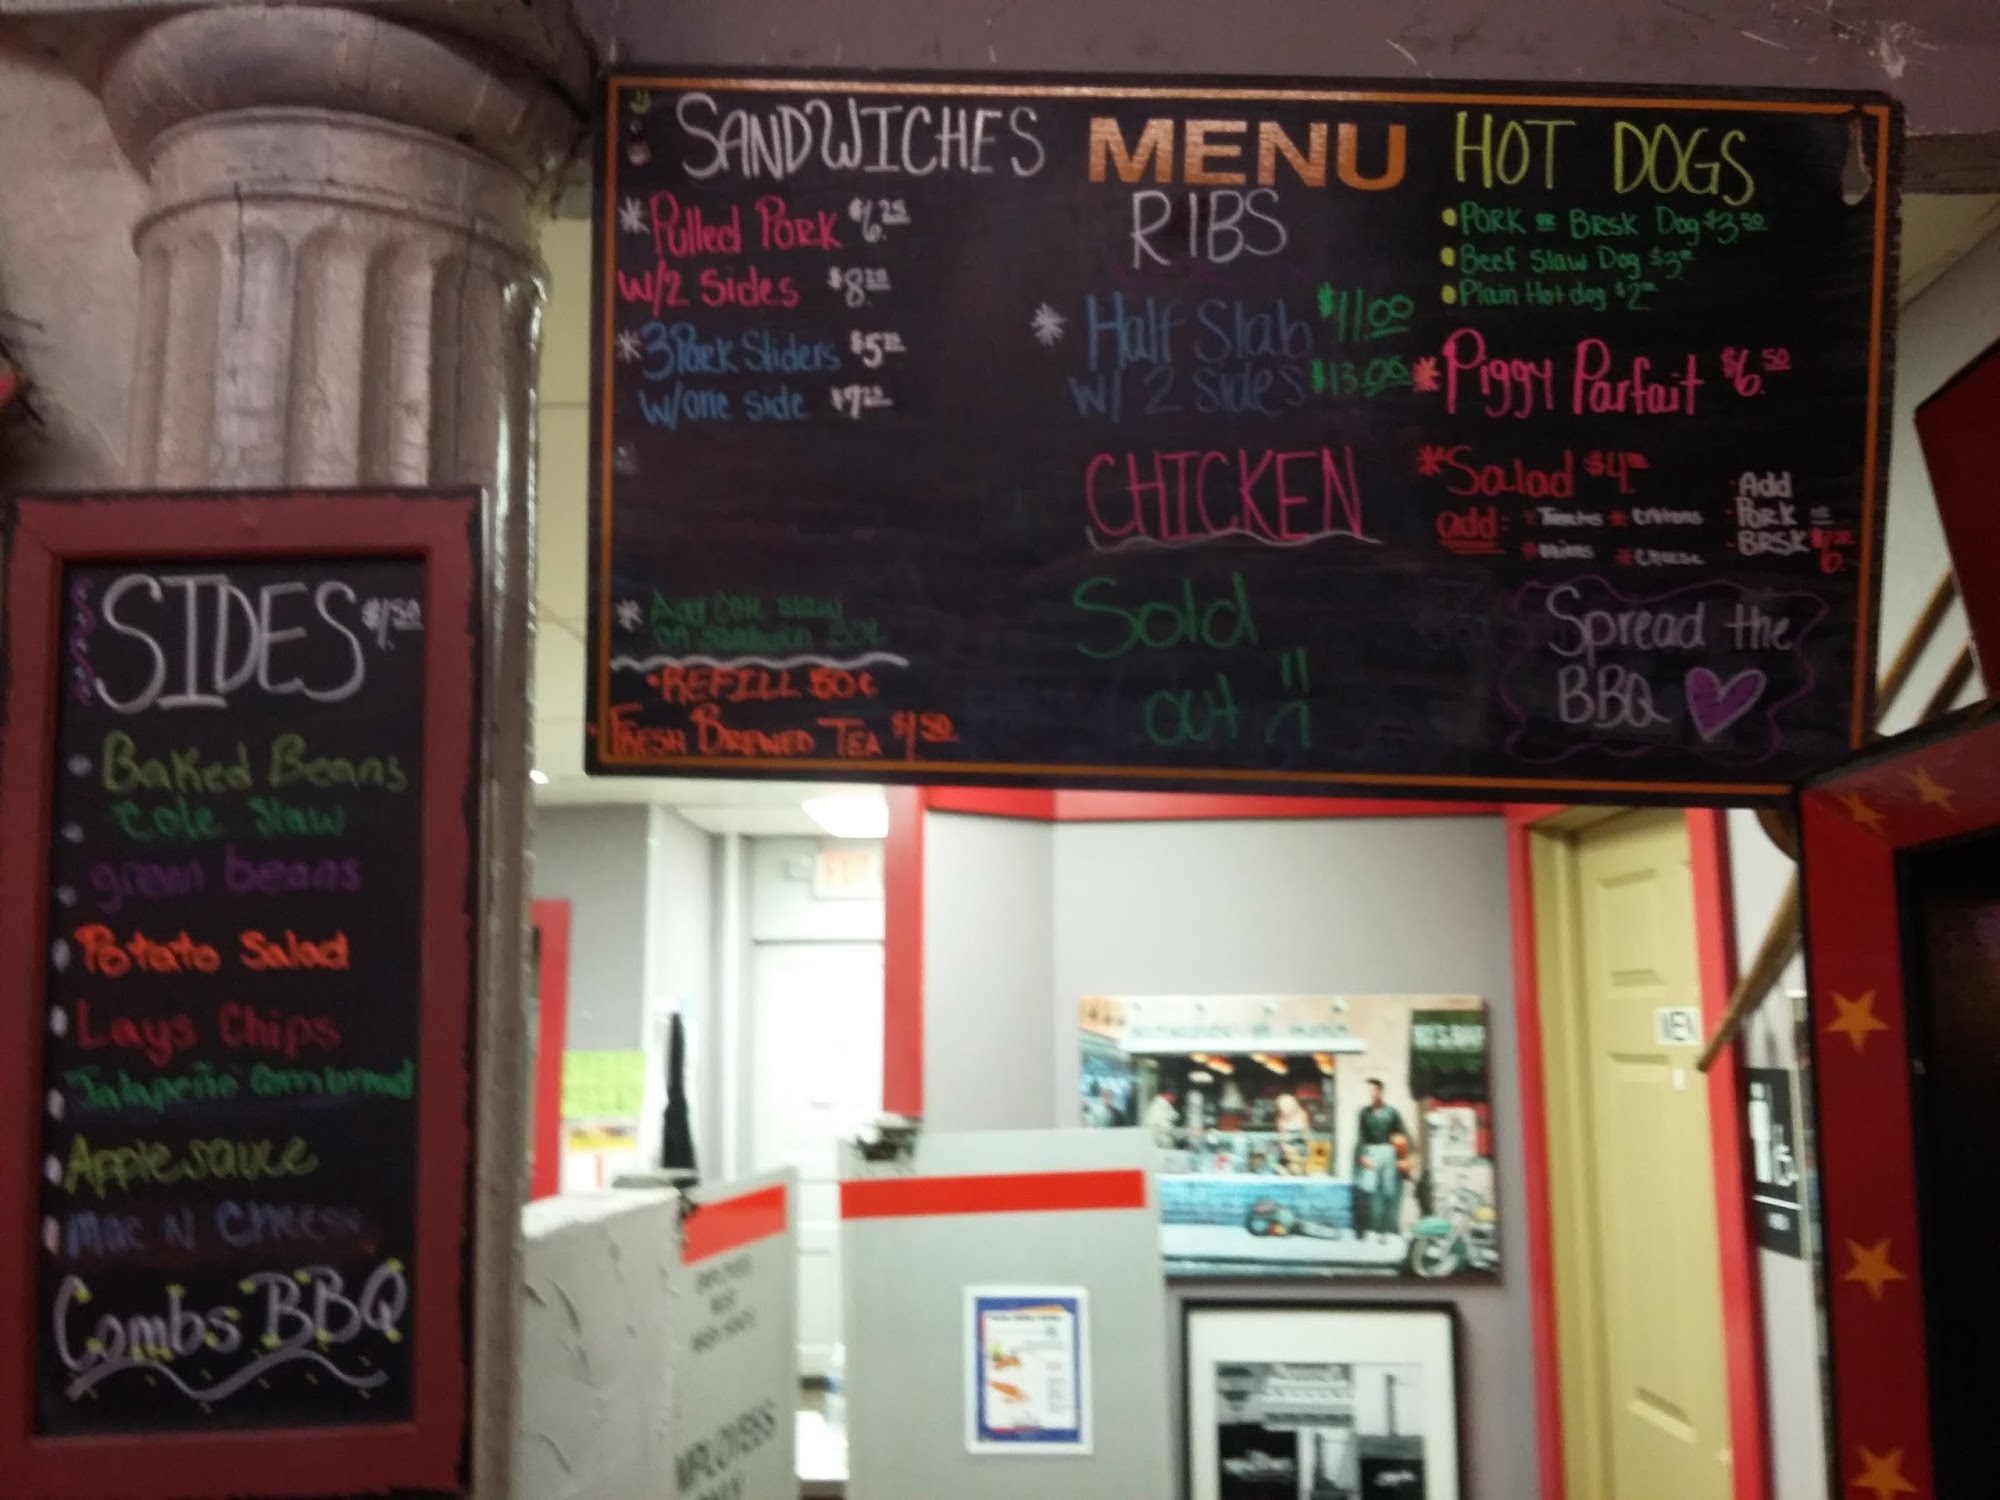 SANDWICHES
* Pulled Pork $6.25
w/2 Sides
* 3 Pork Sliders
w/one side
* Add Cole Slaw
on Sandwich 50¢
• REFILL 50¢
• FRESH BREWED TEA $1.50
MENU
RIBS
* Half Slab $11.00
w/ 2 sides $13.00
CHICKEN
Sold
out
HOT DOGS
• PORK OR BRSK Dog $3.50
• Beef Slaw Dog
• Plain Hot dog
* Piggy Parfait $6.50
* Salad
add: * Tomatoes * Croutons
* onions * Cheese
Add
PORK OR
BRSK
Spread the
BBQ
SIDES $1.50
Baked Beans
Cole Slaw
green beans
Potato Salad
Lays Chips
Jalapeño Cornbread
Applesauce
Mac N Cheese
Combs BBQ
MEN
EMPLOYEES